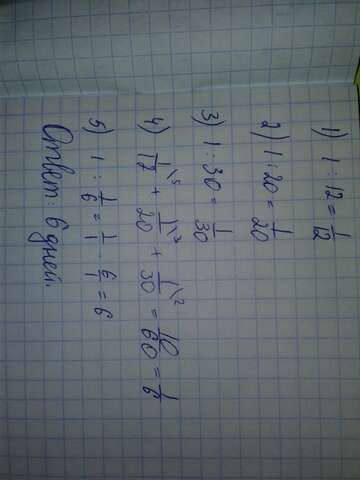 1) 1 : 12 = 1/12
2) 1 : 20 = 1/20
3) 1 : 30 = 1/30
4) 1\5/12 + 1\3/20 + 1\2/30 = 10/60 = 1/6
5) 1 : 1/6 = 1/1 · 6/1 = 6
Ответ: 6 дней.